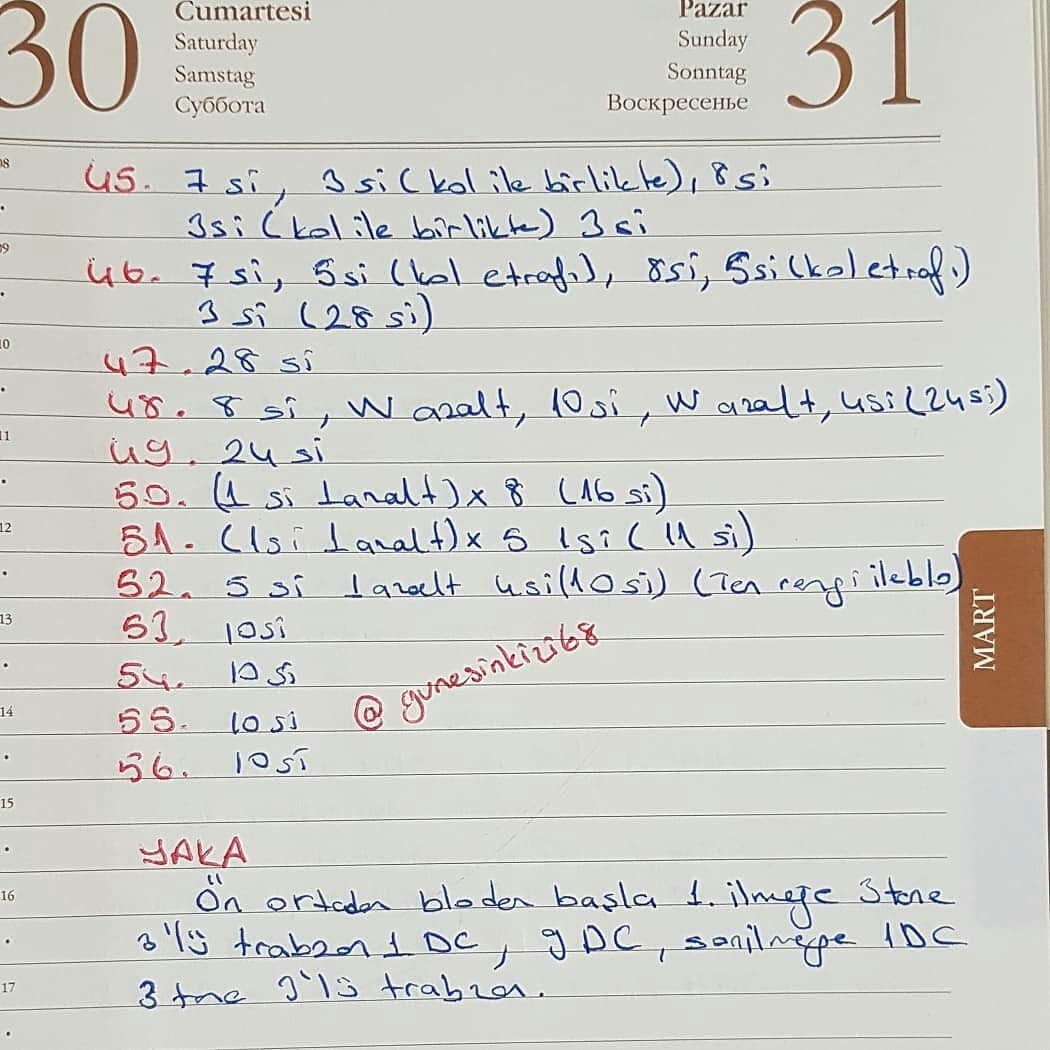 30
Cumartesi
Saturday
Samstag
Суббота
Pazar
Sunday
Sonntag
Воскресенье
31
08
45. 7 si, 3 si (kol ile birlikte), 8 si
3si (kol ile birlikte) 3 si
09
46. 7 si, 5si (kol etrafı), 8si, 5si (kol etrafı)
3 si (28 si)
10
47. 28 si
48. 8 si, W azalt, 10 si, W azalt, 4si (24si)
11
49. 24 si
50. (1 si 1azalt) x 8 (16 si)
12
51. (1si 1azalt) x 5 1si (11 si)
52. 5 si 1azalt 4si (10si) (Ten rengi ile blo)
13
53. 10si
54. 10 si
@gunesinkizi68
14
55. 10 si
56. 10 si
15
YAKA
16
Ön ortadan bloden başla 1. ilmeğe 3 tane
3'lü trabzan 1 DC, 9 DC, son ilmeğe 1DC
17
3 tane 3'lü trabzan.
MART